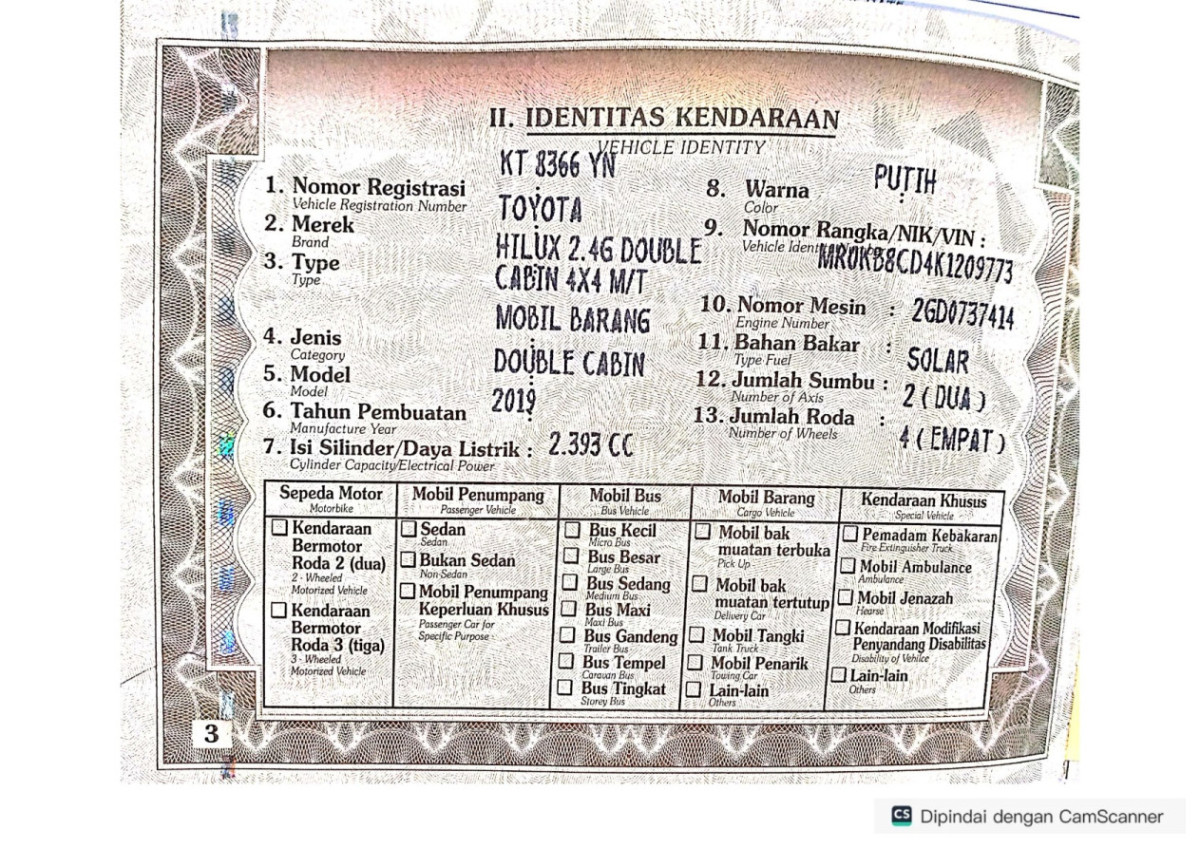 II. IDENTITAS KENDARAAN
VEHICLE IDENTITY
1. Nomor Registrasi : KT 8366 YN
Vehicle Registration Number
2. Merek : TOYOTA
Brand
3. Type : HILUX 2.4G DOUBLE
Type
CABIN 4X4 M/T
4. Jenis : MOBIL BARANG
Category
5. Model : DOUBLE CABIN
Model
6. Tahun Pembuatan : 2019
Manufacture Year
7. Isi Silinder/Daya Listrik : 2.393 CC
Cylinder Capacity/Electrical Power
8. Warna : PUTIH
Color
9. Nomor Rangka/NIK/VIN :
Vehicle Ident
MR0KB8CD4K1209773
10. Nomor Mesin : 2GD0737414
Engine Number
11. Bahan Bakar : SOLAR
Type Fuel
12. Jumlah Sumbu : 2 ( DUA )
Number of Axis
13. Jumlah Roda : 4 ( EMPAT )
Number of Wheels
Sepeda Motor
Motorbike
Kendaraan
Bermotor
Roda 2 (dua)
2 - Wheeled
Motorized Vehicle
Kendaraan
Bermotor
Roda 3 (tiga)
3 - Wheeled
Motorized Vehicle
Mobil Penumpang
Passenger Vehicle
Sedan
Sedan
Bukan Sedan
Non-Sedan
Mobil Penumpang
Keperluan Khusus
Passenger Car for
Specific Purpose
Mobil Bus
Bus Vehicle
Bus Kecil
Micro Bus
Bus Besar
Large Bus
Bus Sedang
Medium Bus
Bus Maxi
Maxi Bus
Bus Gandeng
Trailer Bus
Bus Tempel
Caravan Bus
Bus Tingkat
Storey Bus
Mobil Barang
Cargo Vehicle
Mobil bak
muatan terbuka
Pick Up
Mobil bak
muatan tertutup
Delivery Car
Mobil Tangki
Tank Truck
Mobil Penarik
Towing Car
Lain-lain
Others
Kendaraan Khusus
Special Vehicle
Pemadam Kebakaran
Fire Extinguisher Truck
Mobil Ambulance
Ambulance
Mobil Jenazah
Hearse
Kendaraan Modifikasi
Penyandang Disabilitas
Disability of Vehilce
Lain-lain
Others
3
CS Dipindai dengan CamScanner